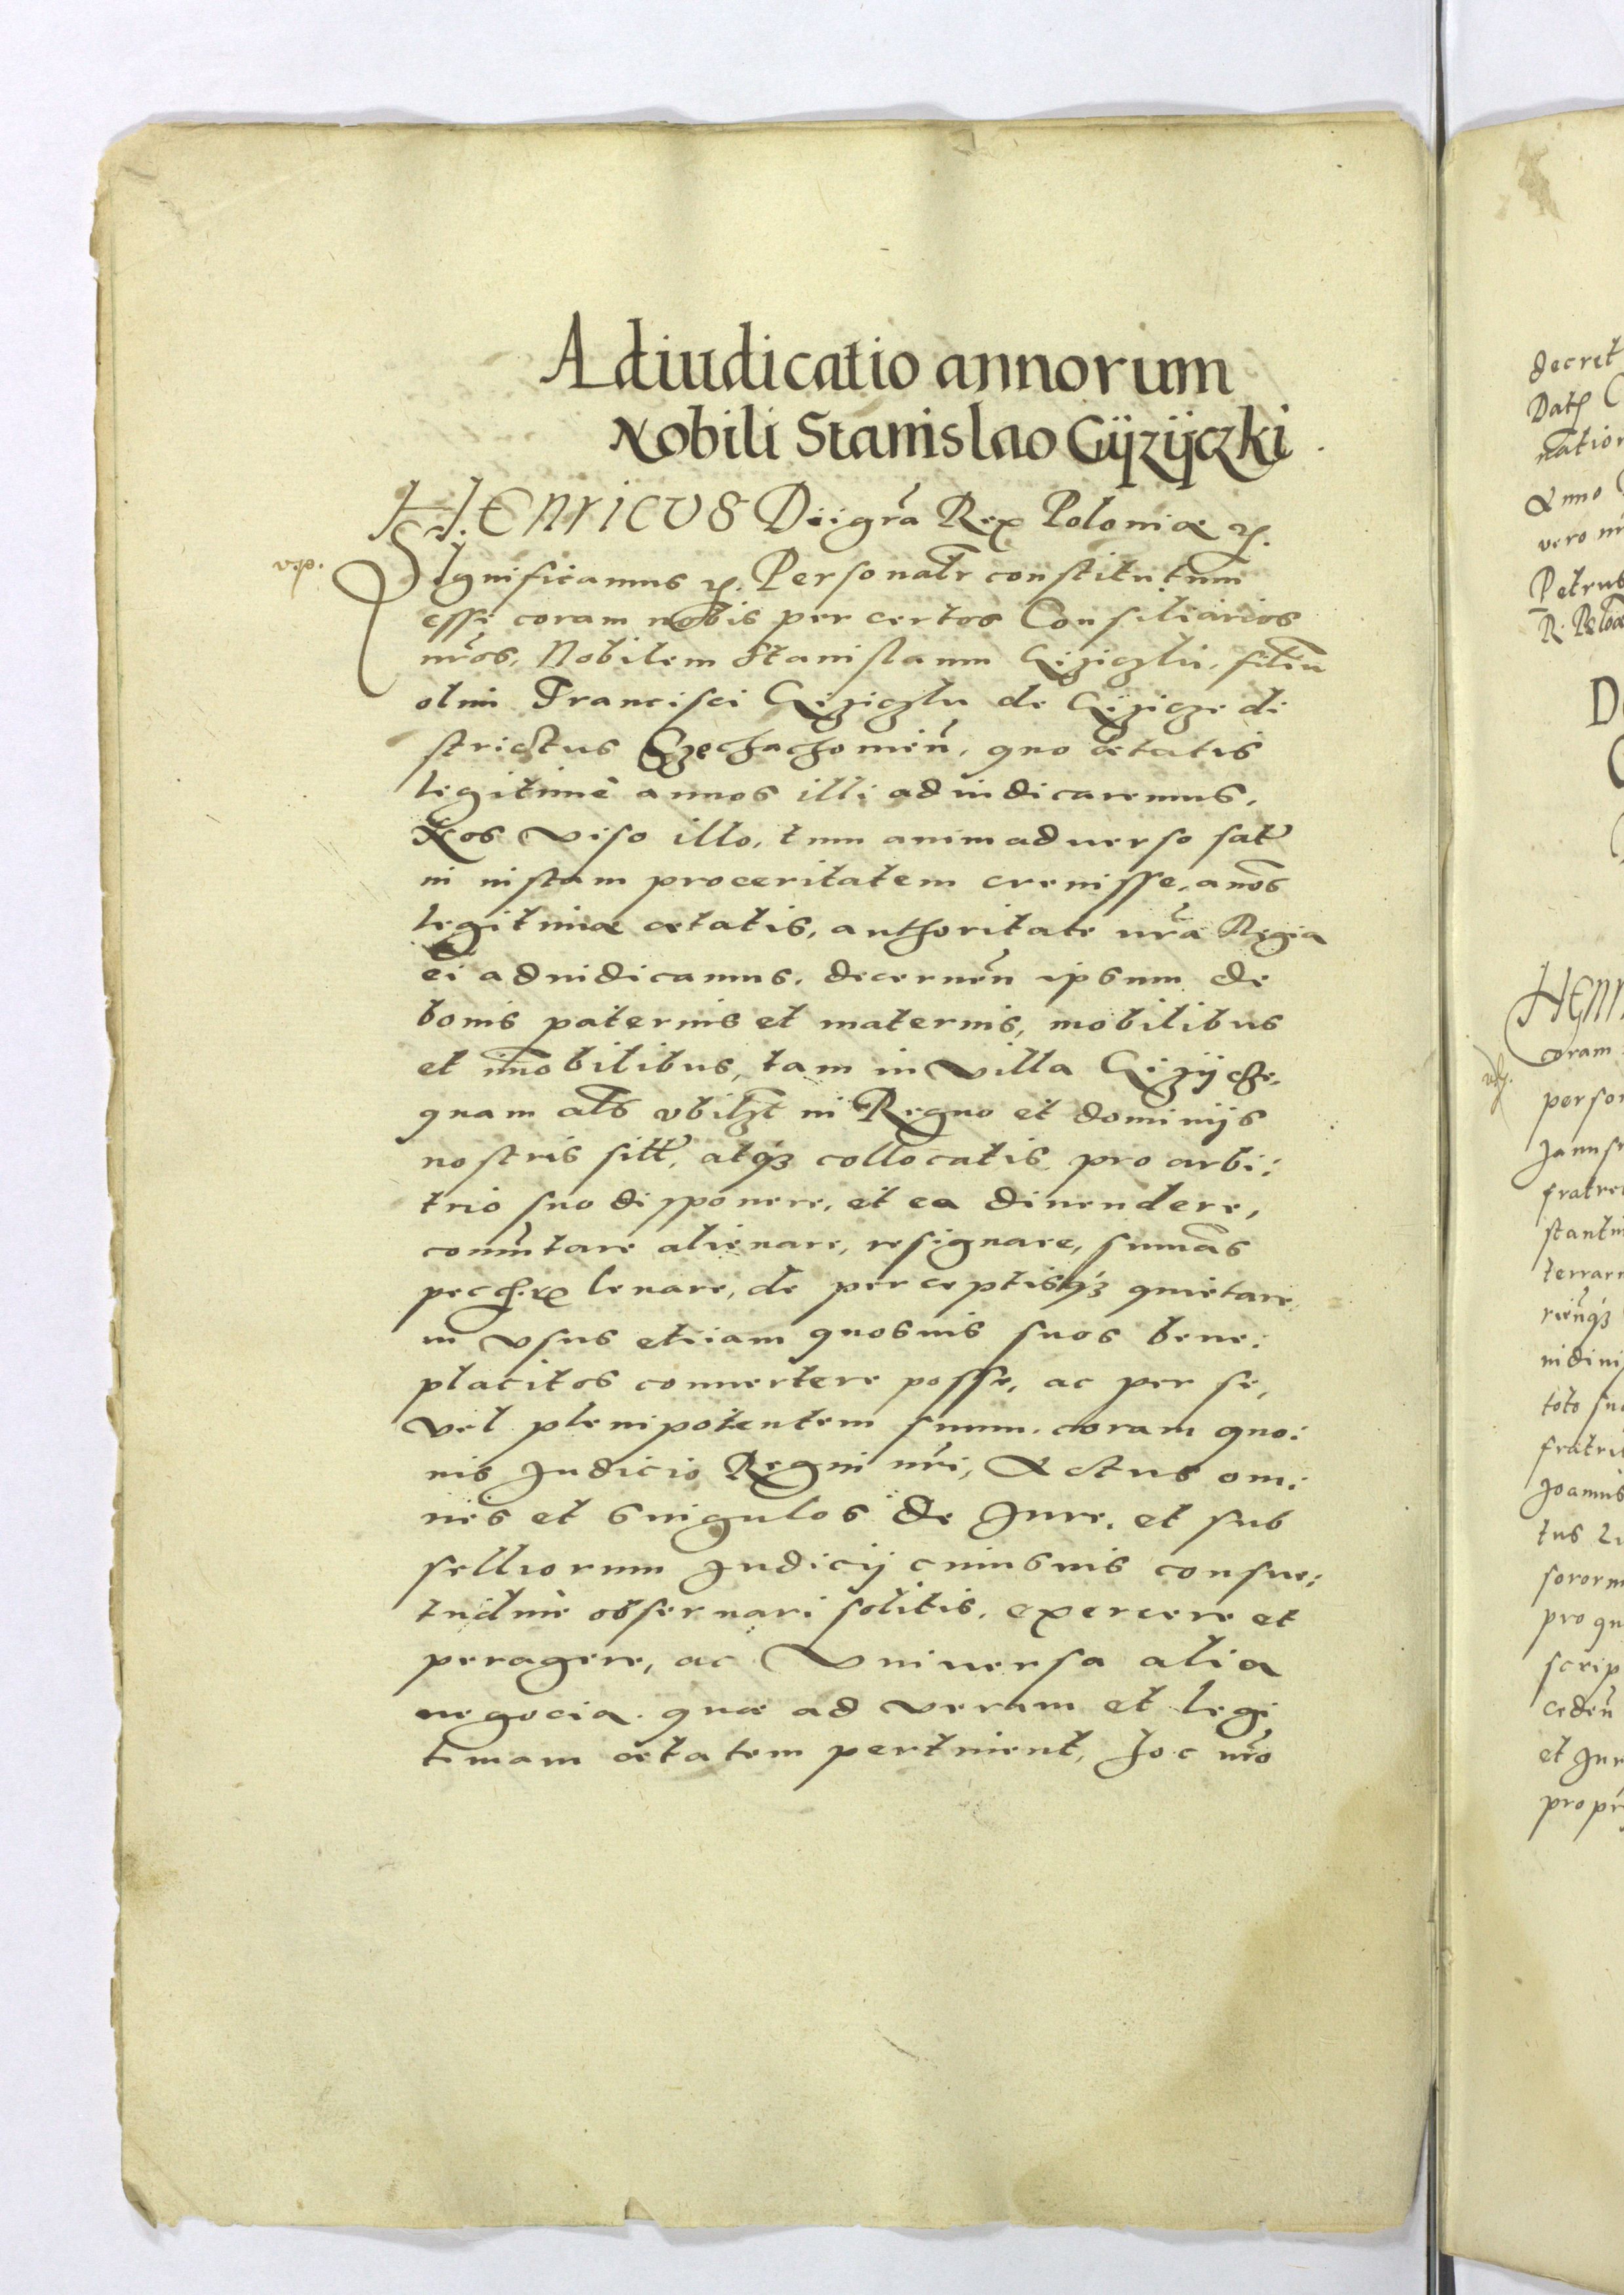 Adiudicatio annorum
Nobili Stanislao Gÿzÿczki.
HENRICVS Dei gr̃a Rex Poloniæ ꝛc.
Significamus ꝛc. Personalr̃ constitutum
esse coram nobis per certos Consiliarios
nr̃os, Nobilem Stanislaum Giziczki, filiũ
olim Francisci Giziczki de Gÿzicze di
strictus Czechachomień, quo ætatis
legitimè annos illi adiudicaremus.
Nos viso illo, tum animaduerso satis
in iustam proceritatem creuisse, anõs
legitimæ ætatis, authoritate nr̃a Regia
ei adiudicamus, decerneñ ipsum de
bonis paternis et maternis, mobilibus
et im̃obilibus, tam in villa Gizijcze,
quam al̃s vbilꝫt in Regno et dominijs
nostris sitis, atqꝫ collocatis pro arbi:
trio suo disponere, et ea diuendere,
com̃utare alienare, resignare, sum̃as
lenare, de perceptisqꝫ quietare
in vsus etiam quosuis suos bene:
placitos conuertere posse, ac per se,
vel plenipotentem suum. coram quo:
uis Judicio Regni nr̃i, Actus om:
nes et singulos de Jure, et sub
selliorum Judicij cuiusuis consue:
tudine obseruari solitis, exercere et
peragere, ac Vniuersa alia
negocia. quæ ad veram et legi
timam ætatem pertinent, hoc nr̃o
decret
Datꝭ
nation
Anno
vero
Petrus
HENR
coram
person
Janus
fratre
stantu
terrar
toto su
fratri
Joannis
tus
soror
pro qu
scrip
cedeñ
et Jur